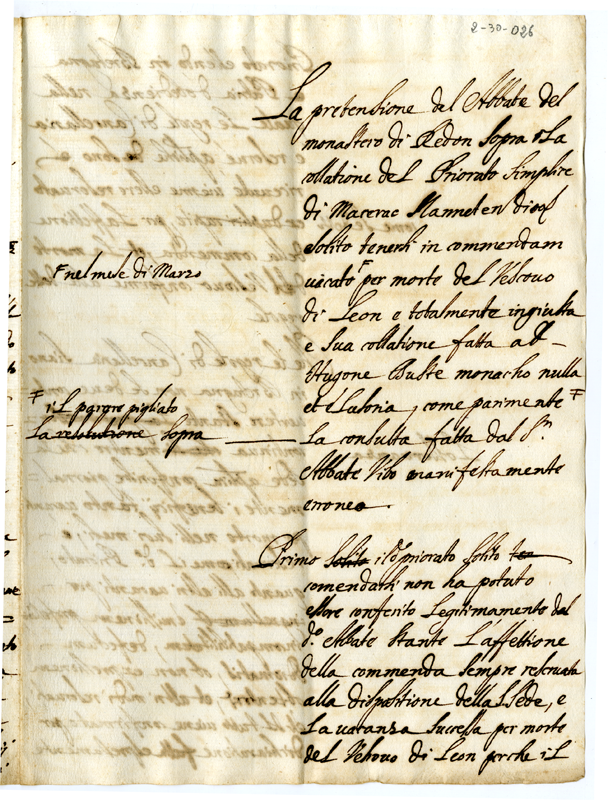 2-30-026
La pretensione del Abbate del
monastero di Redon sopra la
collatione del Priorato simplice
di Macerac Nanneten dioc
solito tenersi in commendam
vacato F per morte del Vescovo
di Leon e totalmente ingiusta
e sua collatione fatta ad
Hugone monacho nulla
et è latoria, come parimente F
La consulta fatta dal Sr.
Abbate Vibo manifestamente
erronea.
F nel mese di Marzo
F il parere pigliato
La resolutione sopra
Primo solito il do priorato solito ten
comendarsi non ha potuto
essere conferito legitimamente dal
do. Abbate stante l'affettione
della commenda sempre reservata
alla dispositione della S Sede, e
La vacanza successa per morte
del Vescovo di Leon perche il